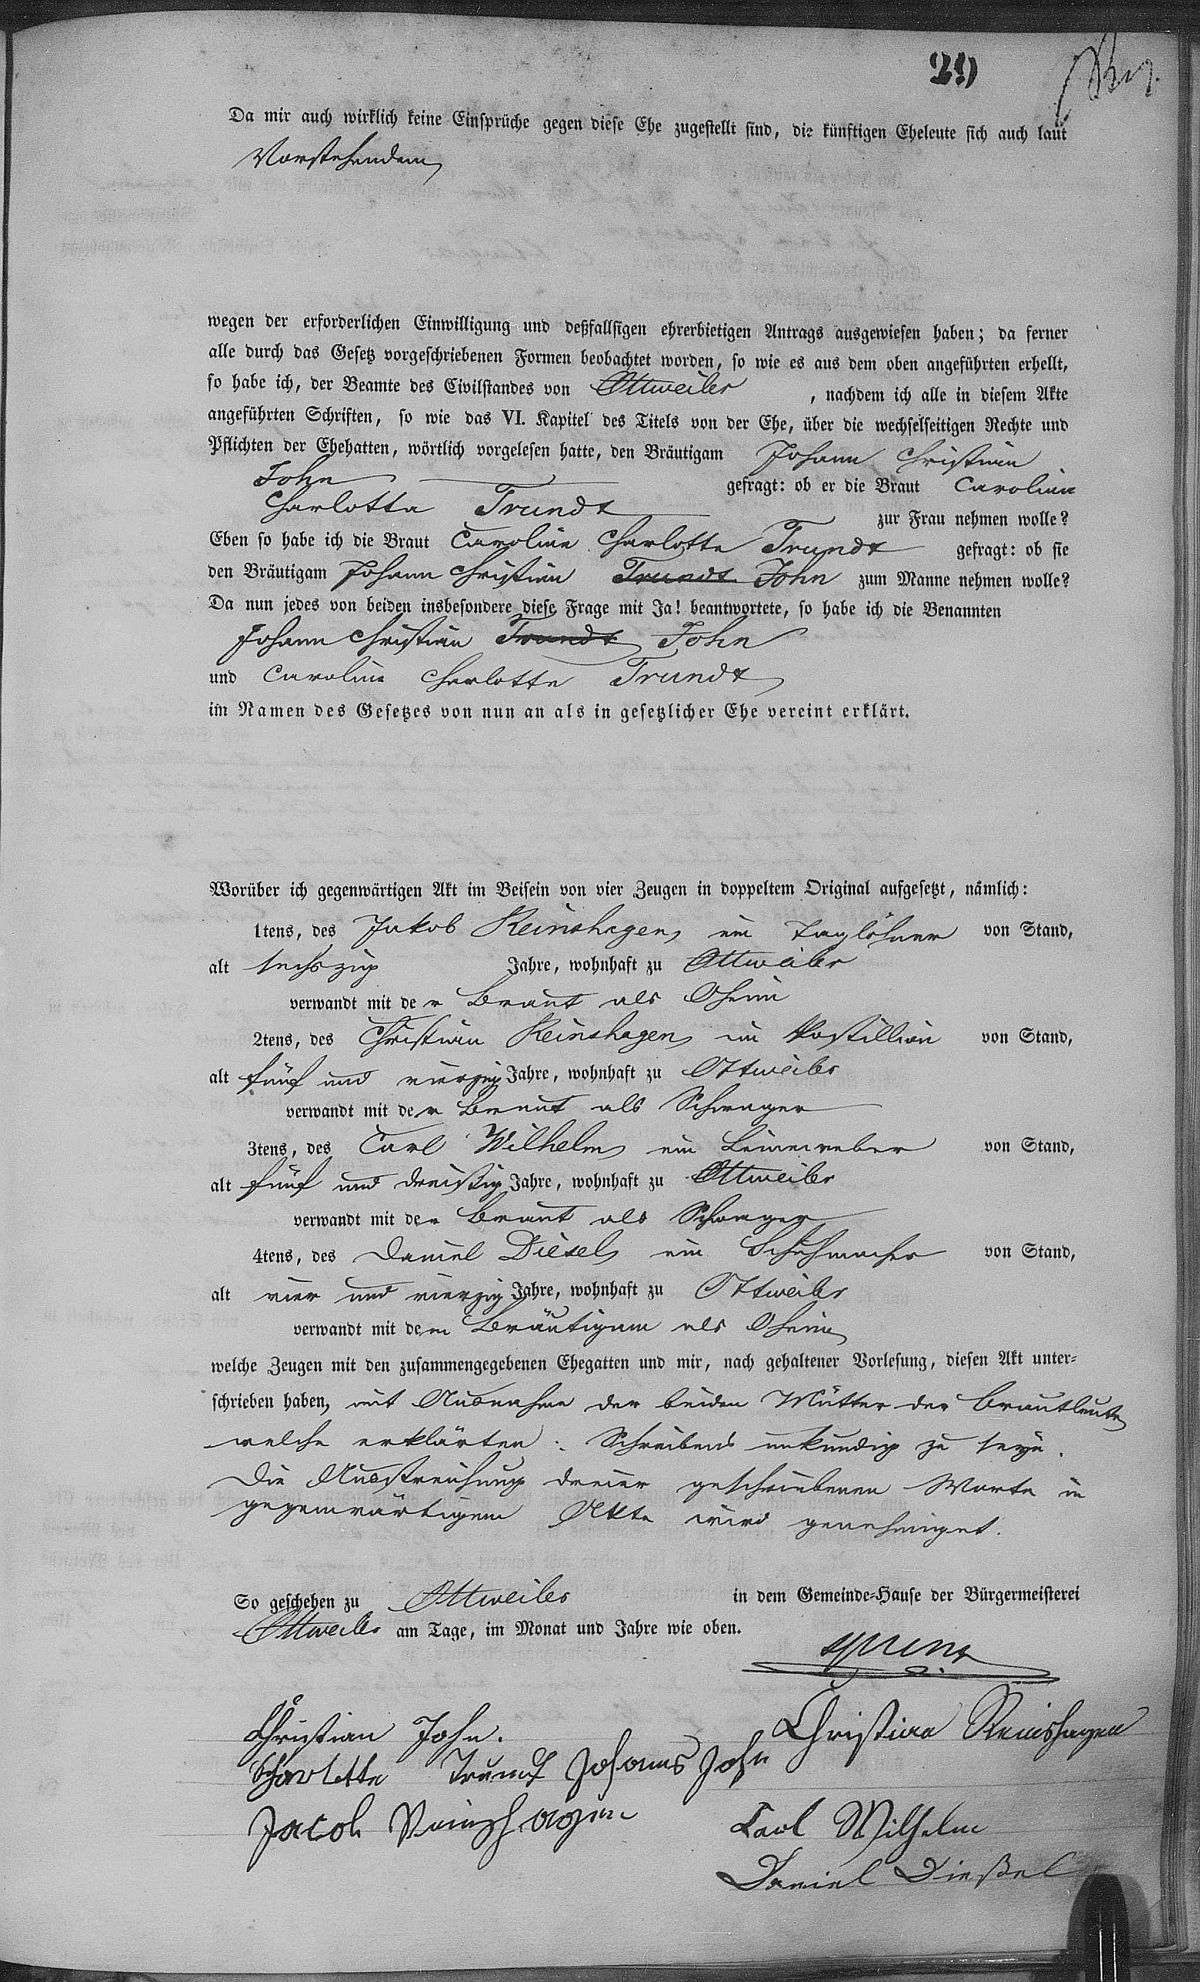 29
Da mir auch wirklich keine Einsprüche gegen diese Ehe zugestellt sind, die künftigen Eheleute sich auch laut
Vorstehendem
wegen der erforderlichen Einwilligung und deßfallsigen ehrerbietigen Antrags ausgewiesen haben; da ferner
alle durch das Gesetz vorgeschriebenen Formen beobachtet worden, so wie es aus dem oben angeführten erhellt,
so habe ich, der Beamte des Civilstandes von Ottweiler , nachdem ich alle in diesem Akte
angeführten Schriften, so wie das VI. Kapitel des Titels von der Ehe, über die wechselseitigen Rechte und
Pflichten der Ehehatten, wörtlich vorgelesen hatte, den Bräutigam Johann Christian
John gefragt: ob er die Braut Carolina
Charlotta Trundt zur Frau nehmen wolle?
Eben so habe ich die Braut Caroline Charlotte Trundt gefragt: ob sie
den Bräutigam Johann Christian Trundt John zum Manne nehmen wolle?
Da nun jedes von beiden insbesondere diese Frage mit Ja! beantwortete, so habe ich die Benannten
Johann Christian Trundt John
und Caroline Charlotte Trundt
im Namen des Gesetzes von nun an als in gesetzlicher Ehe vereint erklärt.
Worüber ich gegenwärtigen Akt im Beisein von vier Zeugen in doppeltem Original aufgesetzt, nämlich:
1tens, des Jakob Reinshagen, ein Taglöhner von Stand,
alt sechszig Jahre, wohnhaft zu Ottweiler
verwandt mit der Braut als Oheim
2tens, des Christian Reinshagen, ein Postillion von Stand,
alt fünf und vierzig Jahre, wohnhaft zu Ottweiler
verwandt mit der Braut als Schwager
3tens, des Carl Wilhelm, ein Leineweber von Stand,
alt fünf und dreißig Jahre, wohnhaft zu Ottweiler
verwandt mit der Braut als Schwager
4tens, des Daniel Diesel, ein Schuhmacher von Stand,
alt vier und vierzig Jahre, wohnhaft zu Ottweiler
verwandt mit dem Bräutigam als Oheim
welche Zeugen mit den zusammengegebenen Ehegatten und mir, nach gehaltener Vorlesung, diesen Akt unter-
schrieben haben, mit Ausnahme der beiden Mütter der Brautleute
welche erklärten: Schreibens unkundig zu seyn.
Die Ausstreichung dreier geschriebenen Worte in
gegenwärtigem Akte wird genehmiget.
So geschehen zu Ottweiler in dem Gemeinde-Hause der Bürgermeisterei
Ottweiler am Tage, im Monat und Jahre wie oben.
Christian John. Christian Reinshagen
Charlotte Trundt Johannes John
Jacob Reinshagen Carl Wilhelm
Daniel Dießel